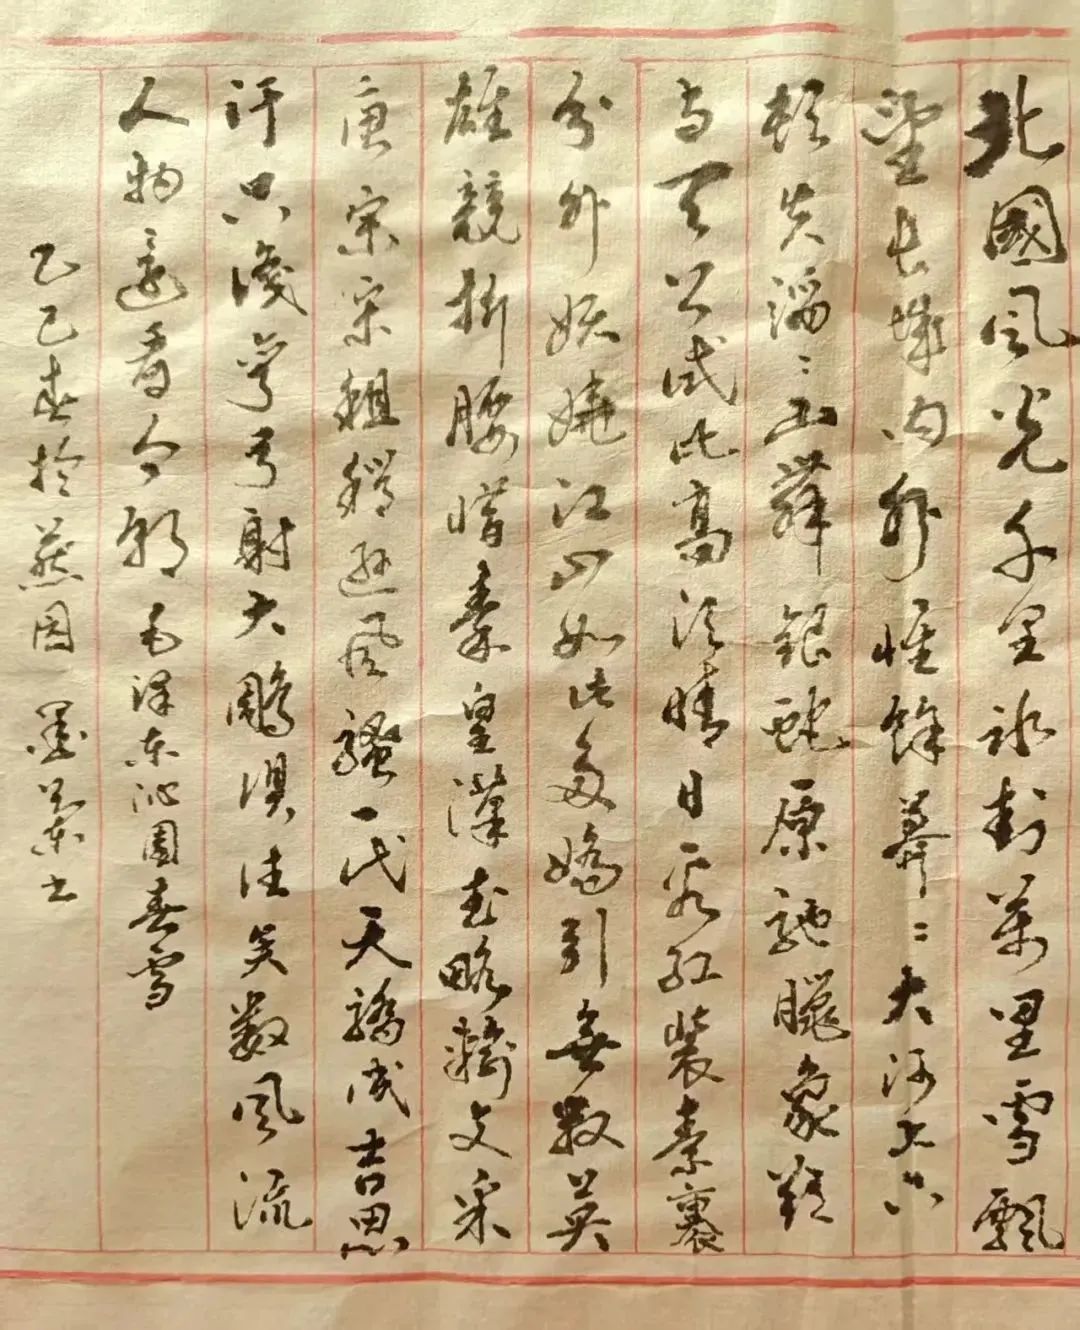 北國風光千里冰封萬里雪飄
望長城內外惟餘莽〻大河上下
頓失滔〻山舞銀蛇原馳臘象欲
与天公試比高須晴日看红裝素裹
分外妖嬈江山如此多嬌引無數英
雄競折腰惜秦皇漢武略輸文采
唐宗宋祖稍遜風騷一代天驕成吉思
汗只識彎弓射大鵰俱往矣数風流
人物還看今朝毛澤东沁園春雪
乙巳春於燕園